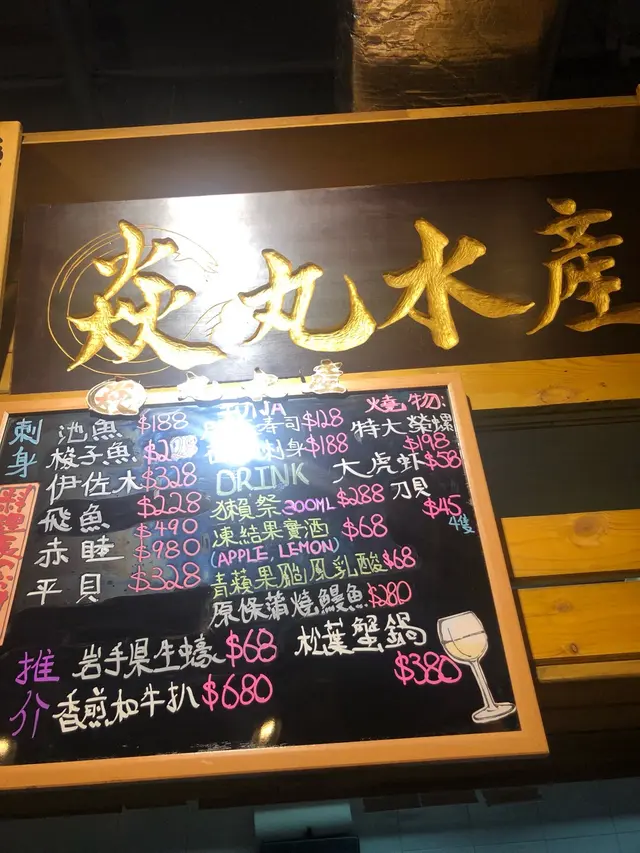 焱丸水產
刺身
池魚 $188
梭子魚
伊佐木 $328
飛魚 $228
赤睦 $490
$980
平貝 $328
寿司 $128
刺身 $188
DRINK
獺祭 300ML $288
凍結果實酒 $68
(APPLE, LEMON)
青蘋果颱風乳酸 $68
原條蒲燒鰻魚 $280
燒物:
特大榮螺
$198
大虎蝦 $58
刀貝
$45
4隻
推介
岩手県生蠔 $68
香煎和牛扒 $680
松葉蟹鍋
$380